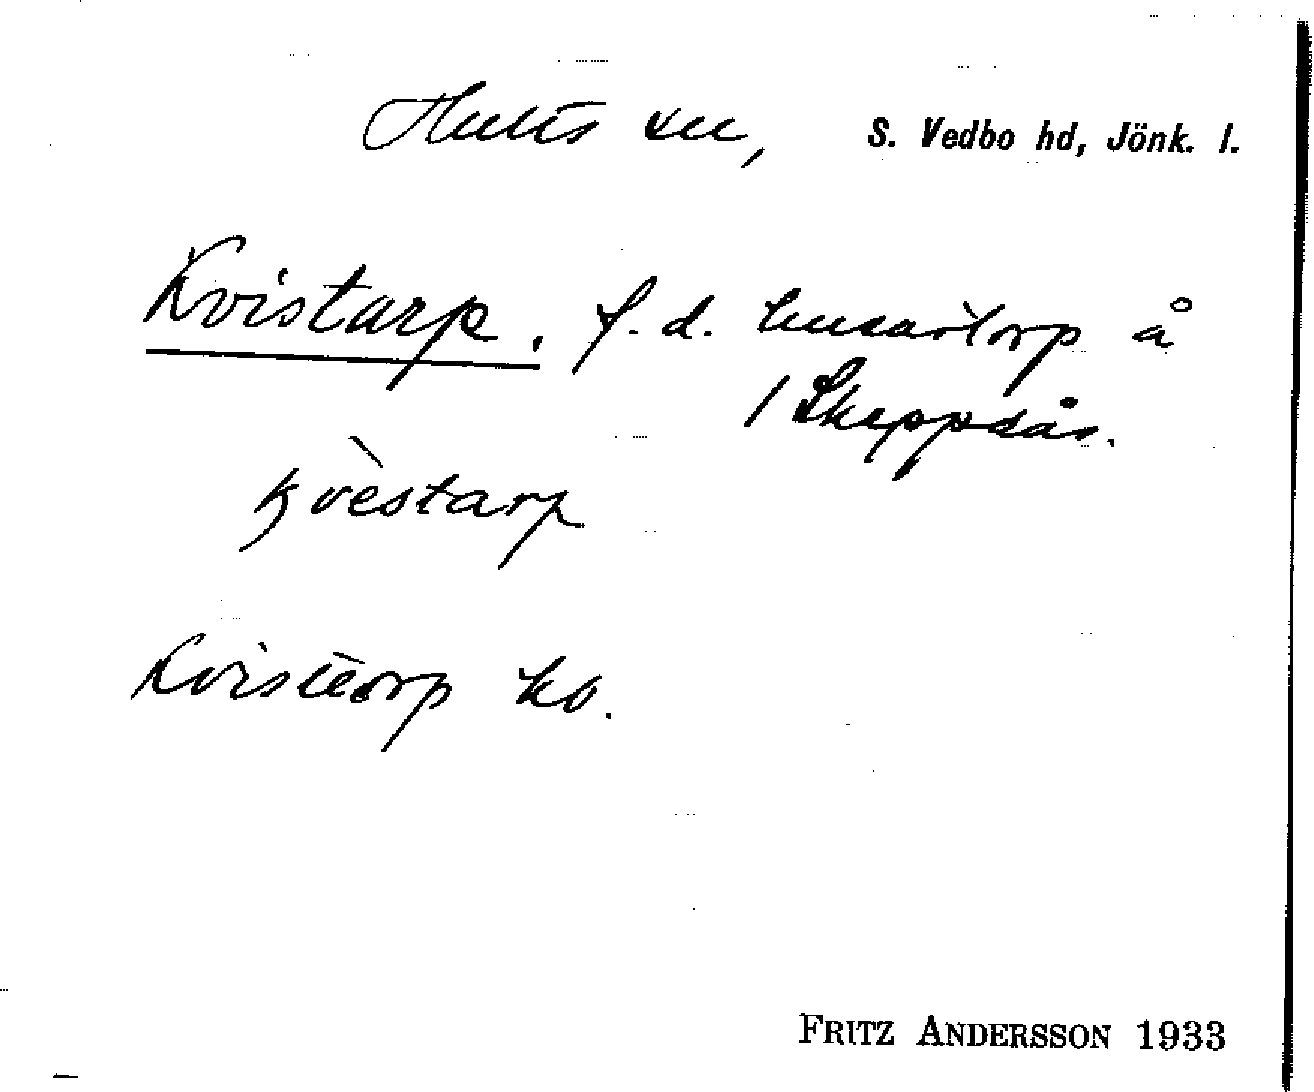 Hults sn, S. Vedbo hd, Jönk. l.
Kvistarp. f. d. husartorp å
/ Skeppsås.
kvèstarp
Kvisttorp kb.
FRITZ ANDERSSON 1933